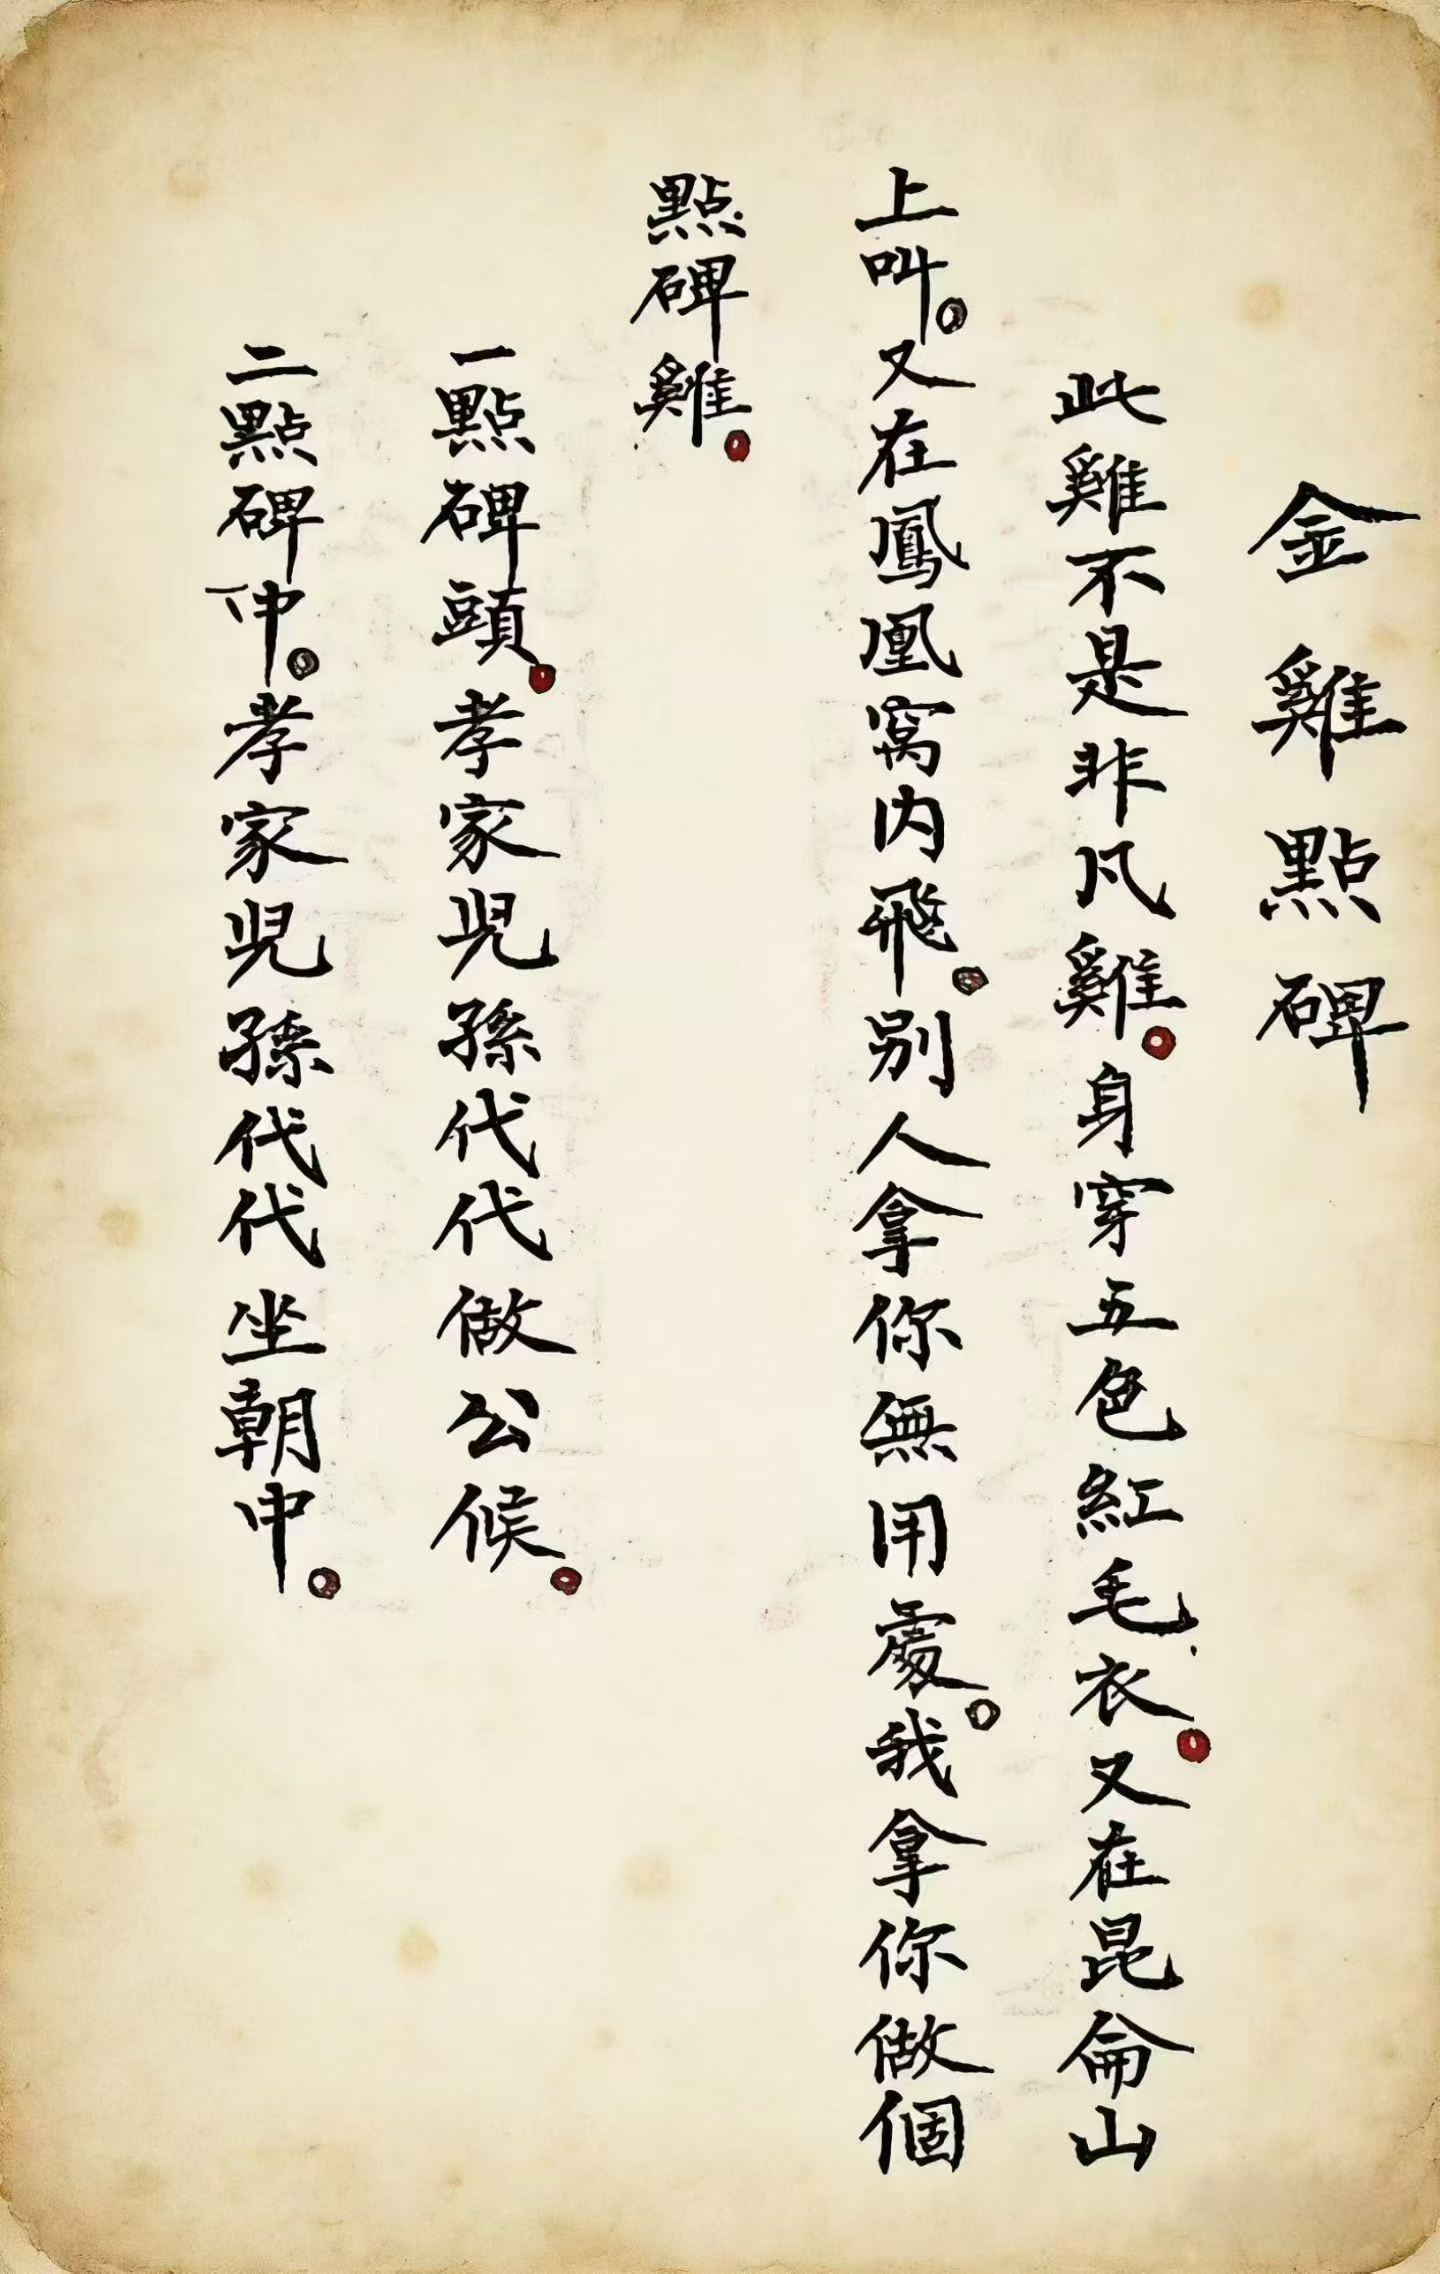 金雞點碑
此雞不是非凡雞。身穿五色紅毛衣。又在昆侖山
上叫。又在鳳凰窩内飛。别人拿你無用處。我拿你做個
點碑雞。
一點碑頭。孝家児孫代代做公候。
二點碑中。孝家児孫代代坐朝中。